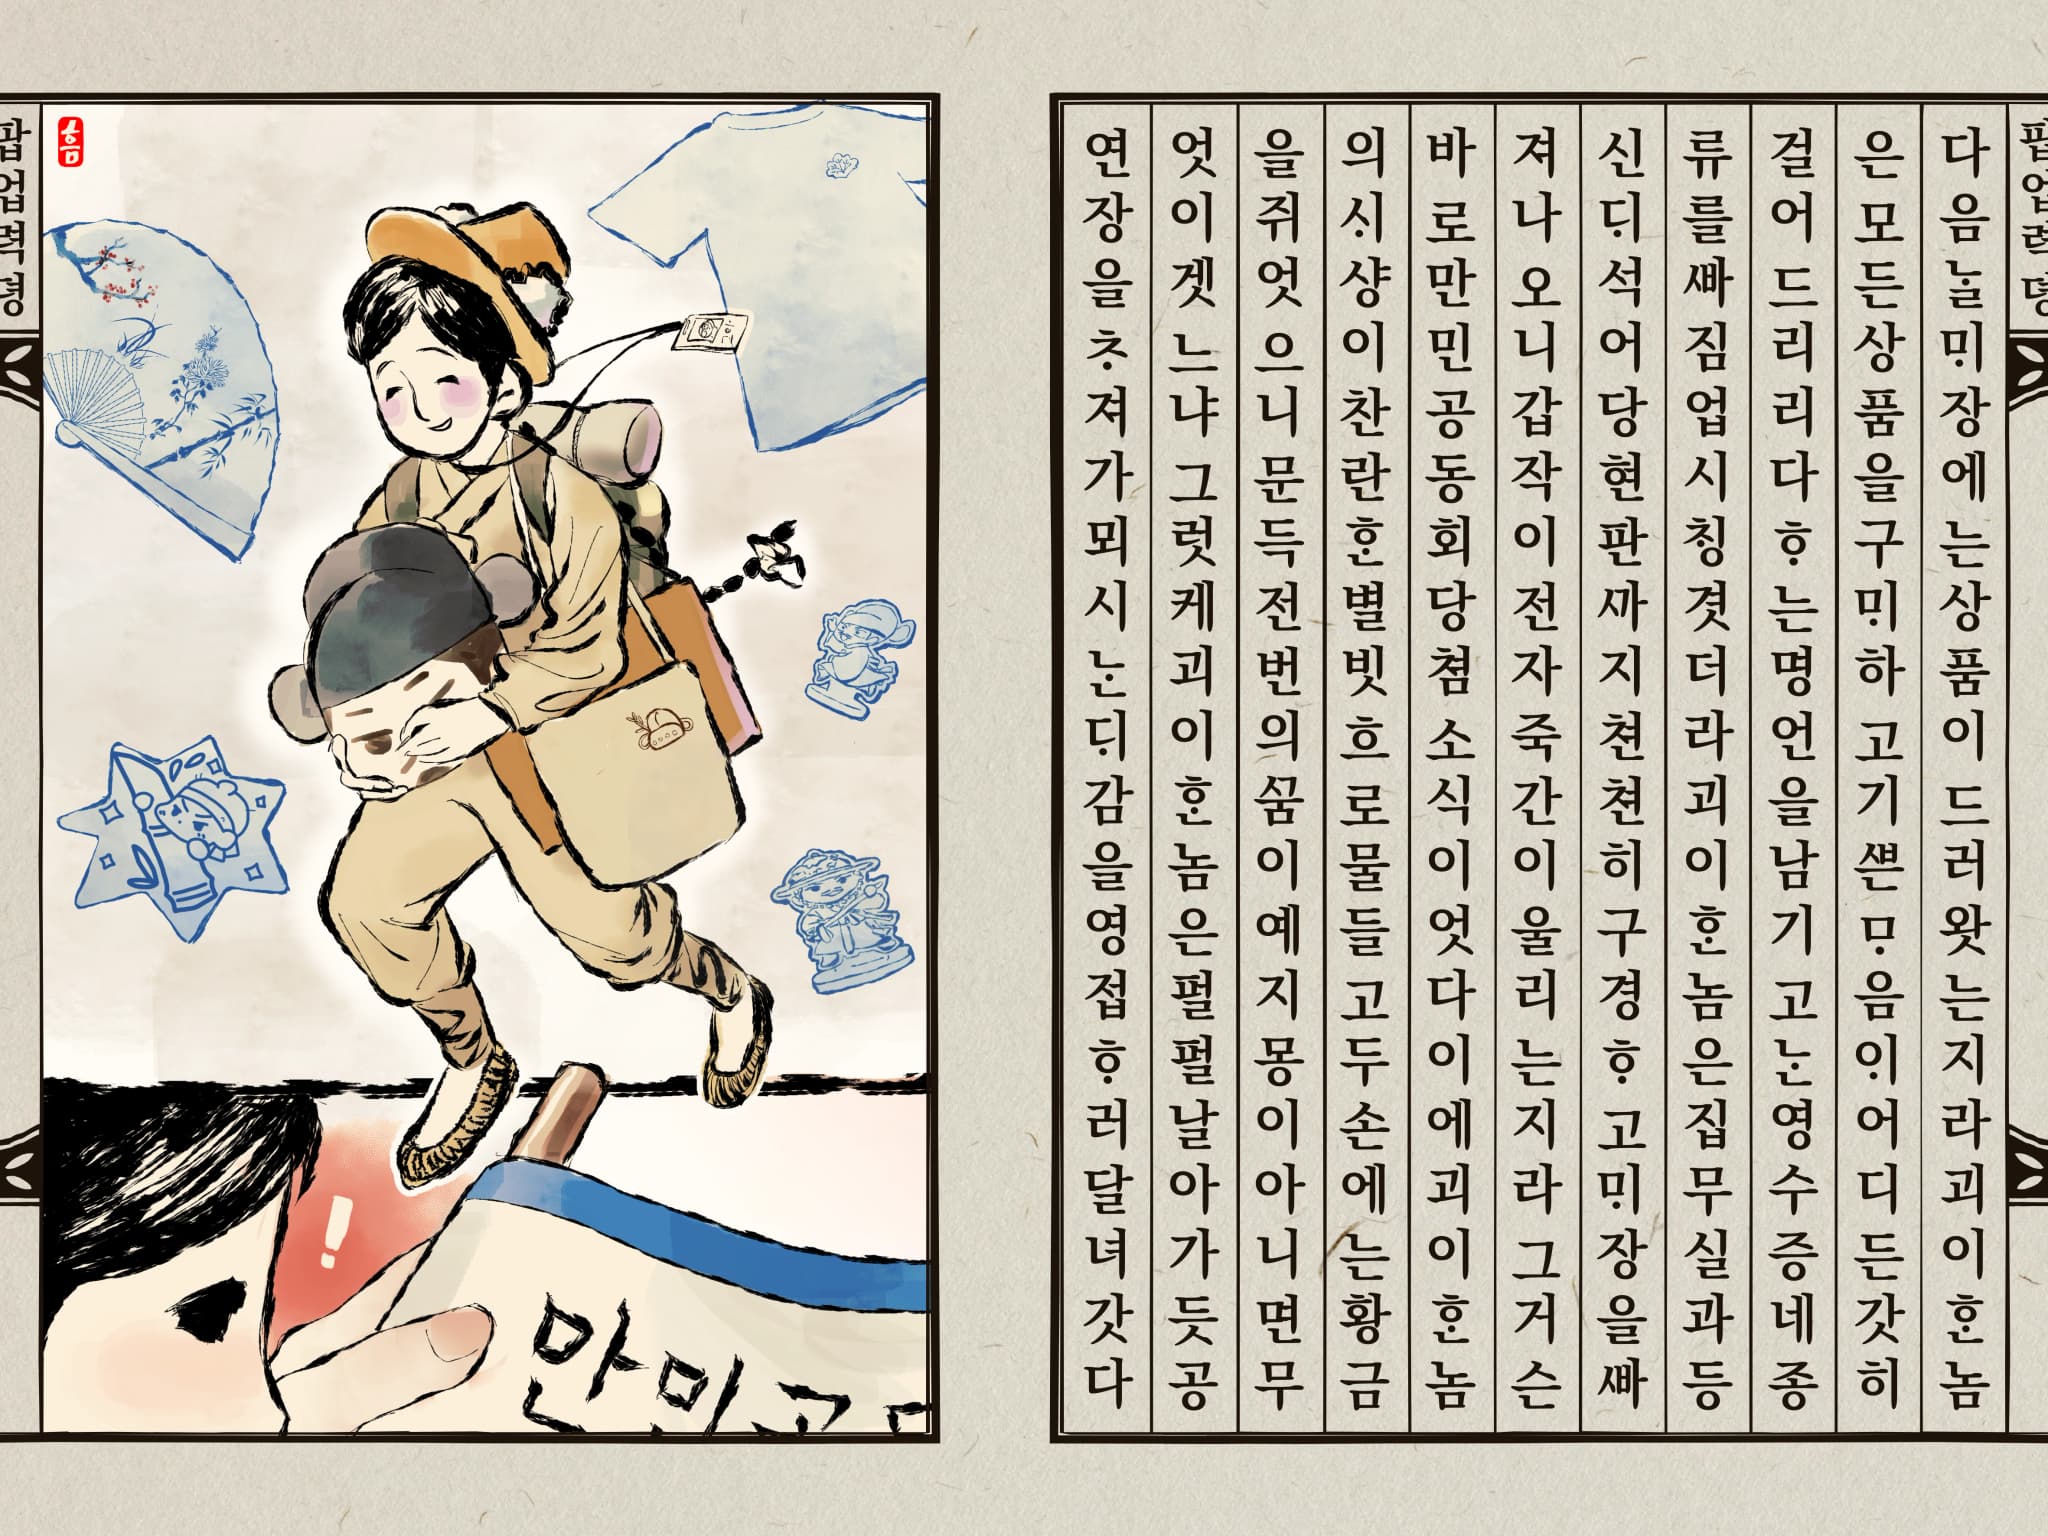 팝업력뎡
다음ᄂᆞᆯᄆᆡ장에는상품이드러왓는지라괴이ᄒᆞᆫ놈
은모든상품을구ᄆᆡ하고기ᄲᅳᆫᄆᆞ음ᄋᆡ어디든갓히
걸어드리리다ᄒᆞ는명언을남기고ᄂᆞᆫ영수증네종
류를ᄲᅡ짐업시ᄎᆡᆼ겻더라괴이ᄒᆞᆫ놈은집무실과등
신ᄃᆡ석어당현판ᄭᅡ지쳔쳔히구경ᄒᆞ고ᄆᆡ장을ᄲᅡ
져나오니갑작이전자죽간이울리는지라그거슨
바로만민공동회당쳠소식이엇다이에괴이ᄒᆞᆫ놈
의ᄉᆡ샹이찬란ᄒᆞᆫ별빗흐로물들고두손에는황금
을쥐엇으니문득전번의ᄭᅮᆷ이예지몽이아니면무
엇이겟느냐그럿케괴이ᄒᆞᆫ놈은펄펄날아가듯공
연장을ᄎᆞ져가뫼시ᄂᆞᆫᄃᆡ감을영접ᄒᆞ러달녀갓다
흠
팝업력뎡